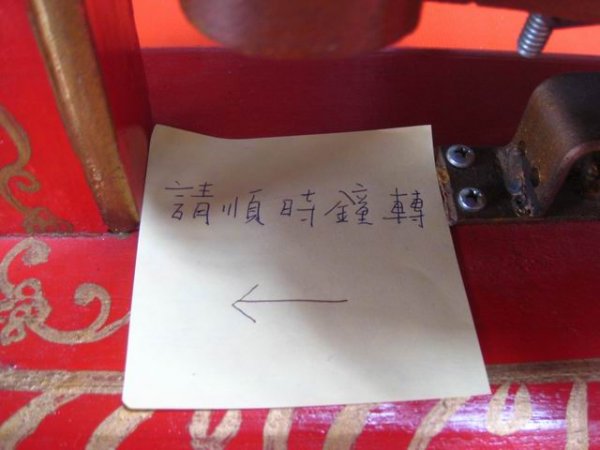 請順時鐘轉